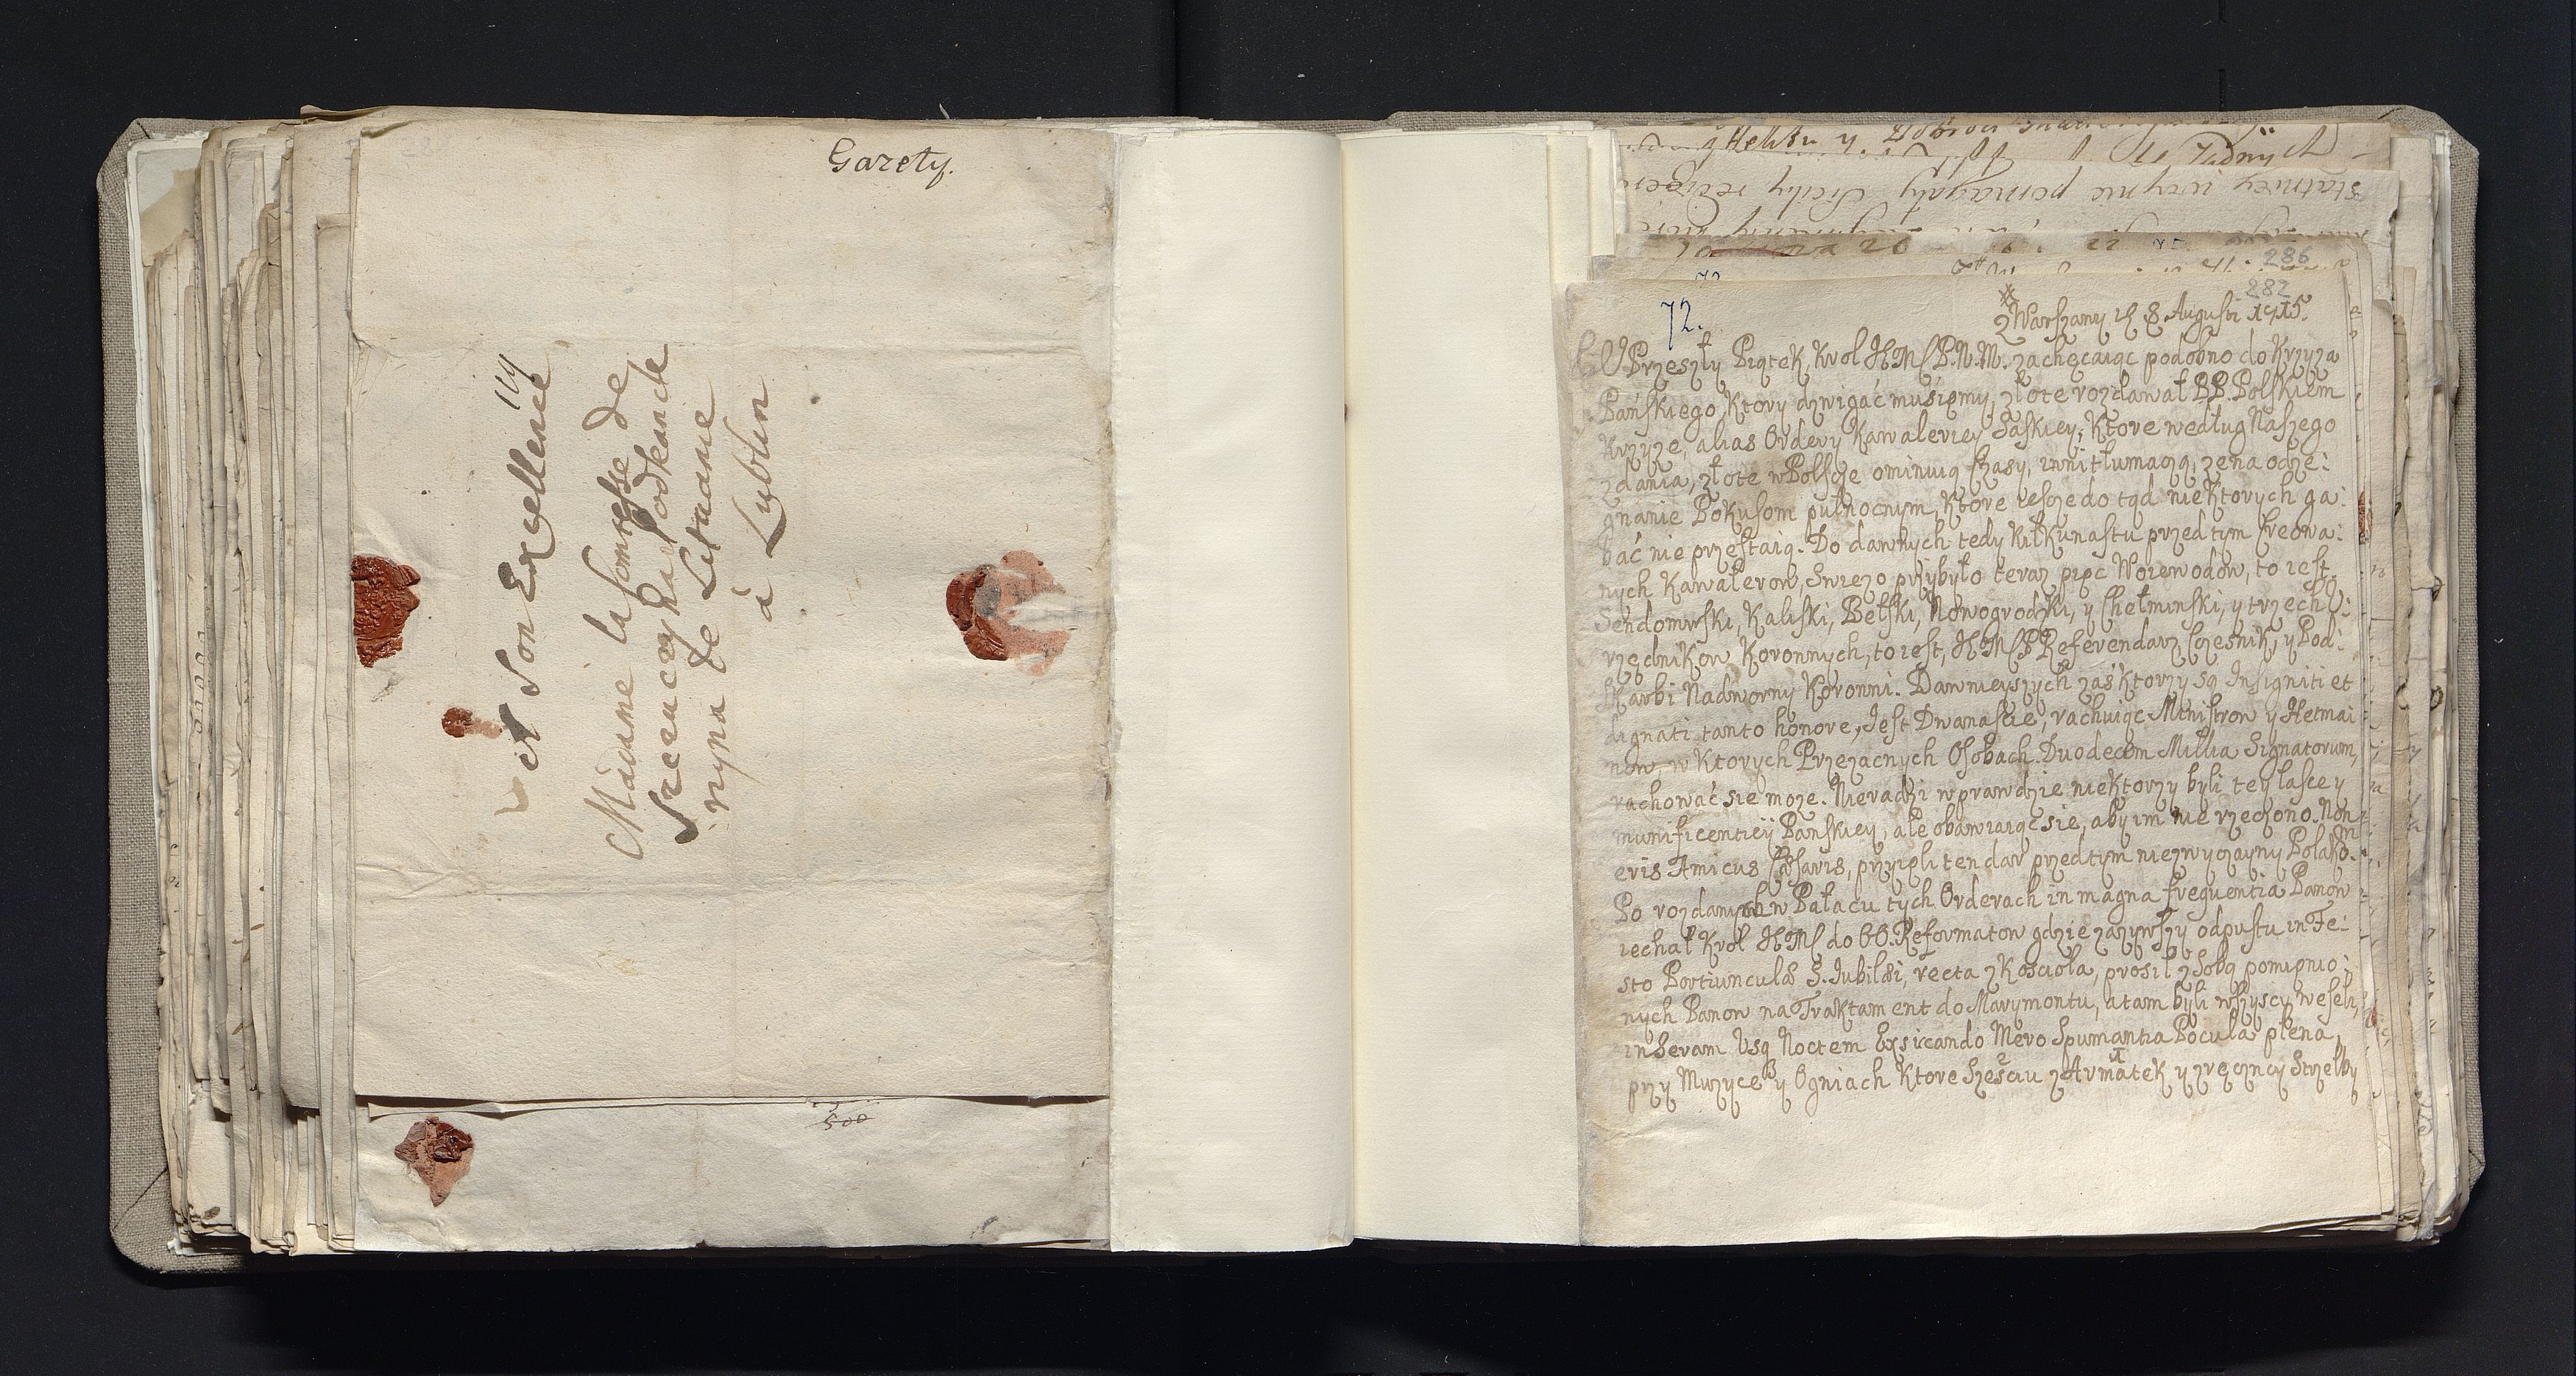 Gazety.
A Son Excellence
Madame la Comtesse de
Szczuczyka Podkancle
rzyna de Lituanie
à Lublin
500
statniey uczynic pomagały
286
282
72.
z Warszawy d 8 Augusti 1715.
W Przeszły Piątek, Krol JKMC P.N.M. zachęcaiąc podobno do Krzyża
Pańskiego, Ktory dzwigać muśięmy, złote rozdawał PP. Polskiem
Krzyże, alias Ordery Kawaleriey Saskiey; Ktore według Naszego
zdania, złote w Polszcze ominuią Czasy, inni tłumaczą, że na odże:
gnanie Pokusom pułnocnym, Ktore ieszcze do tąd niektorych ga:
bać nie przestaią. Do dawnych tedy kilkunastu przed tym kreowa:
nych Kawalerow, Swiezo przybyło teraz pięc Woiewodow, to iest
Sendomirski, Kaliski, Bełski, Nowogrodzki, y Chełminski, y trzech U:
rzędnikow Koronnych, to iest, JchMC P Referendarz Czesnik, y Pod:
skarbi Nadworny Koronni. Dawnieyszych zaś ktorzy są Insigniti et
dignati tanto honore, Jest Dwanascie, rachuiąc Ministrow y Hetma:
now, w Ktorych Przezacnych Osobach Duodecem Millia Signatorum,
rachować sie może. Nieradzi wprawdzie niektorzy byli tey łasce y
munificentiey Panskiey, ale obawiaiąc sie, aby im nie rzeczono. Non
eris Amicus Cæsaris, przyięli ten dar przed tym niezwyczayny Polakom.
Po rozdanych w Pałacu tych Orderach in magna frequentia Panow
iechał Krol JKMC do OO. Reformatow gdzie zażywszy odpustu in Fe:
sto Portiunculæ S. Iubilæi, recta z Koscioła, prosił z Sobą pomięnio:
nych Panow na Traktament do Marymontu, a tam byli wszyscy weseli,
in Seram Usq Noctem Exsiccando Mero Spumantia Pocula plena,
przy Muzyce y Ogniach Ktore Sześciu z Armatek y zręczney Strzelby